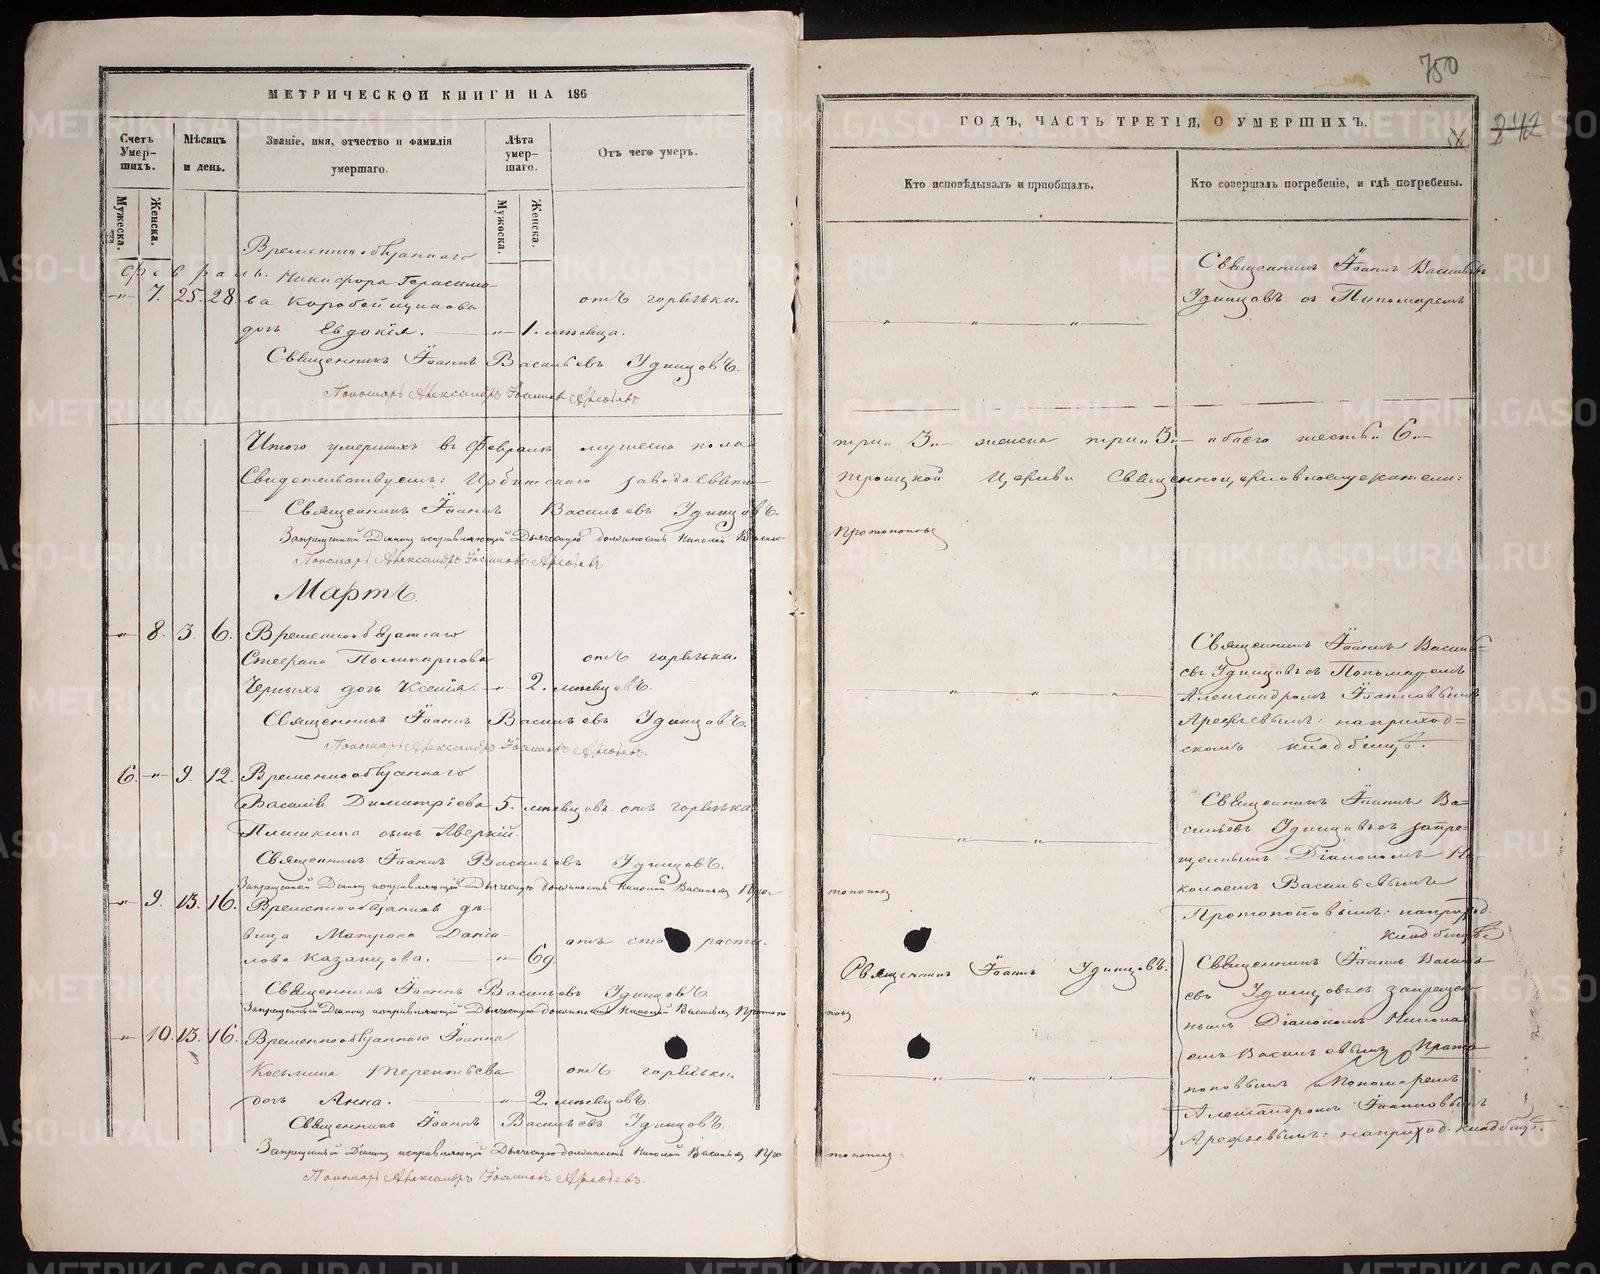 МЕТРИЧЕСКОИ КНИГИ НА 186
Счетъ Умер-шихъ.
Мужеска.
Женска.
Мѣсяцъ и день.
Званіе, имя, отчество и фамилія умершаго.
Лѣта умер-шаго.
Мужеска.
Женска.
Отъ чего умеръ.
Февраль.
Временнообязаннаго
Никифора Герасимо-
" 7. 25. 28. ва Коробейщикова отъ горячки.
дочь Евдокія. " 1. мѣсяца.
Священникъ Іоаннъ Васильевъ Удинцовъ.
Пономарь Александръ Іоанновъ Арефьевъ
Итого умершихъ въ Февралѣ мужеска пола
Свидетельствуемъ: Ирбитскаго завода Свято-
Священникъ Іоаннъ Васильевъ Удинцовъ.
Запрещенный Діаконъ исправляющій Дьяческую должность Николай Василь
Пономарь Александръ Іоанновъ Арефьевъ
Мартъ.
" 8. 3. 6. Временнообязаннаго
Стефана Поликарпова отъ горячки.
Черныхъ дочь Ксенія. " 2. мѣсяцовъ.
Священникъ Іоаннъ Васильевъ Удинцовъ.
Пономарь Александръ Іоанновъ Арефьевъ.
6. " 9. 12. Временнообязаннаго
Василія Димитріева 5. мѣсяцовъ. отъ горячки.
Плишкина сынъ Аверкій.
Священникъ Іоаннъ Васильевъ Удинцовъ.
Запрещенный Діаконъ исправляющій Дьяческую должность Николай Васильевъ Про-
" 9. 13. 16. Временнообязанная дѣ-
вица Матрона Дани-
лова Казанцова. " 69.
Священникъ Іоаннъ Васильевъ Удинцовъ.
Запрещенный Діаконъ исправляющій Дьяческую должность Николай Васильевъ Протопо
" 10. 13. 16. Временнообязаннаго Іоанна
Козьмина Терентьева отъ горячки.
дочь Анна. " 2. мѣсяцовъ.
Священникъ Іоаннъ Васильевъ Удинцовъ.
Запрещенный Діаконъ исправляющій Дьяческую должность Николай Васильевъ Про
Пономарь Александръ Іоанновъ Арефьевъ.
750
242
ГОДЪ, ЧАСТЬ ТРЕТІЯ, О УМЕРШИХЪ.
Кто исповѣдывалъ и пріобщалъ.
Кто совершалъ погребеніе, и гдѣ погребены.
Священникъ Іоаннъ Васильевъ
Удинцовъ съ Пономаремъ
" " "
три " 3. " женска три " 3. " обоего шесть " 6. "
троицкой Церкви Священноцерковнослужители:
Протопоповъ
Священникъ Іоаннъ Василь-
евъ Удинцовъ съ Пономаремъ
" " "
Александромъ Іоанновымъ
Арефьевымъ: на приход-
скомъ кладбищѣ.
Священникъ Іоаннъ Ва-
сильевъ Удинцовъ съ запре-
" "
щеннымъ Діакономъ Ни-
колаемъ Васильевымъ
топоповъ
Протопоповымъ: на приход.
кладбищѣ
Священникъ Іоаннъ Удинцовъ.
Священникъ Іоаннъ Василь-
евъ Удинцовъ съ запрещен-
повъ
нымъ Діакономъ Никола-
емъ Васильевымъ Прото-
" " "
поповымъ и Пономаремъ
Александромъ Іоанновымъ
Арефьевымъ: на приход. кладбищѣ.
топоповъ.
METRIKI.GASO-URAL.RU